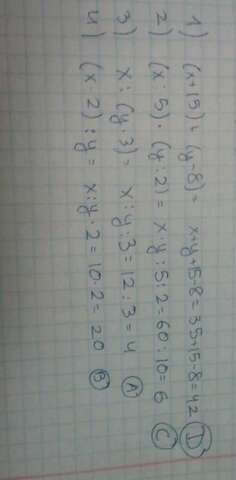 1) (x+15)+(y-8)= x+y+15-8=35+15-8=42 D
2) (x:5)·(y:2)= x·y:5:2=60:10=6 C
3) x:(y·3)= x:y:3=12:3=4 A
4) (x·2):y= x:y·2=10·2=20 B